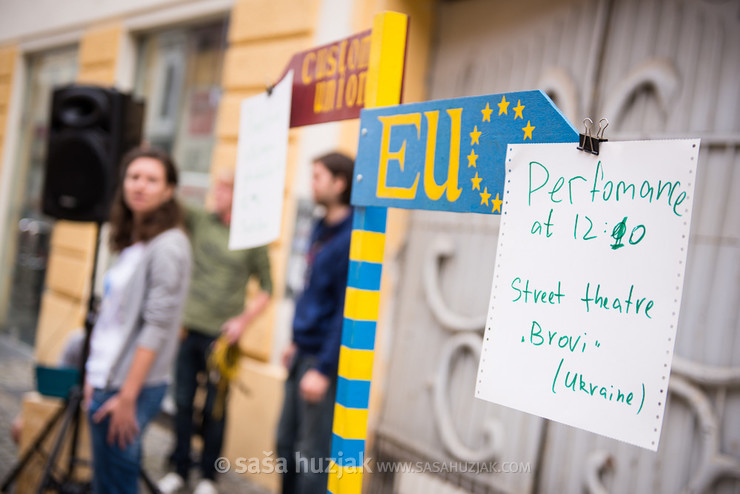 Custom
union
EU
Perfomance
at 12:10
Street theatre
„Brovi"
(Ukraine)
© saša huzjak | WWW.SASAHUZJAK.COM